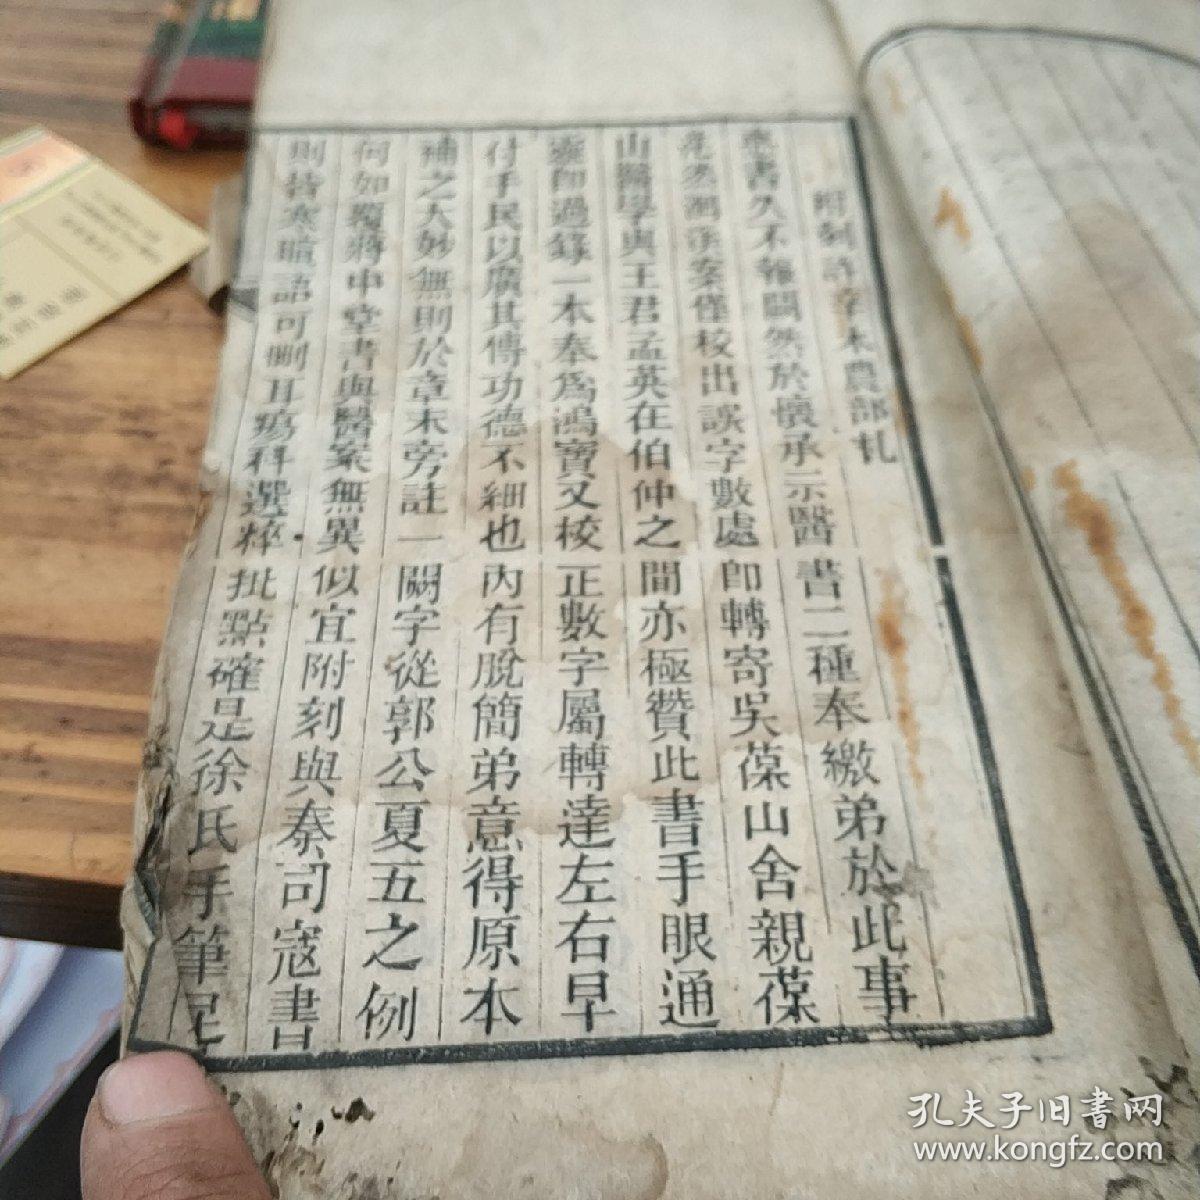 附刻許辛木農部札
來書久不報闕然於懷承示醫書二種奉繳弟於此事
茫然洄溪案僅校出誤字數處即轉寄吳葆山舍親葆
山醫學與王君孟英在伯仲之間亦極贊此書手眼通
靈即過錄一本奉為鴻寶又校正數字屬轉達左右早
付手民以廣其傳功德不細也內有脫簡弟意得原本
補之大妙無則於章末旁註一闕字從郭公夏五之例
何如覆蔣中堂書與醫案無異似宜附刻與秦司寇書
則皆寒暄語可刪耳瘍科選粹批點確是徐氏手筆足
孔夫子旧书网
www.kongfz.com